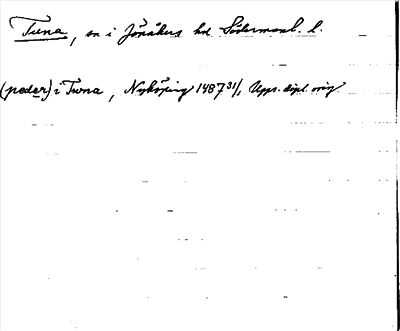 Tuna, sn i Jönåkers hd Södermanl. l.
(peder) i Tuna, Nyköping 1487 31/1 Upps. dipl. orig.